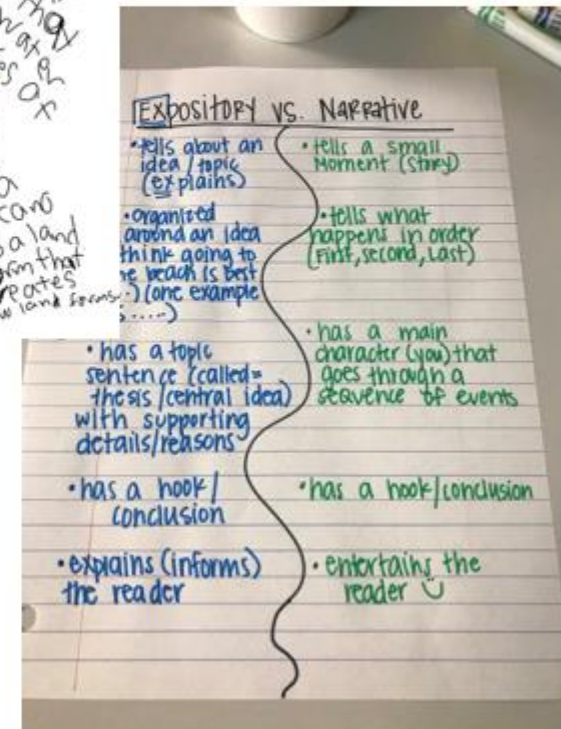 EXpository vs. Narrative
•tells about an
idea/topic
(explains)
•organized
around an idea
think going to
beach is best
(one example
.....)
• has a topic
sentence (called=
thesis/central idea)
with supporting
details/reasons
•has a hook/
conclusion
•explains (informs)
the reader
• tells a small
Moment (story)
•tells what
happens in order
(First, second, Last)
•has a main
character (you) that
goes through a
sequence of events
•has a hook/conclusion
• entertains the
reader
a land
that
land